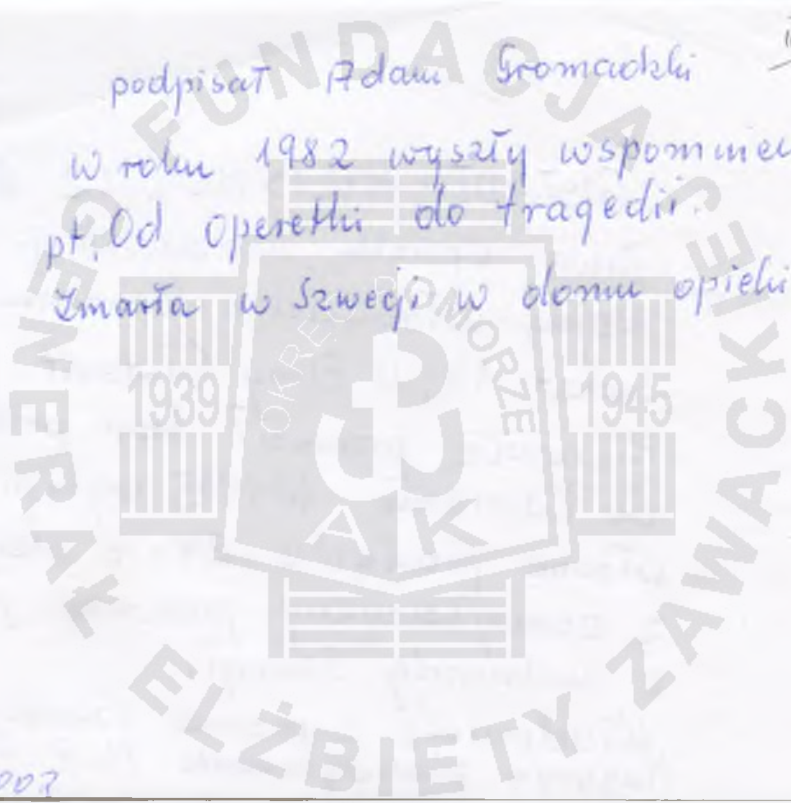 podpisał Adam Gromadzki
W roku 1982 wyszły
pt. Od operetki do tragedii.
Zmarła w Szwecji w domu opieki
FUNDACJA
GENERAŁ ELŻBIETY ZAWACKIEJ
OKRĘG POMORZE
1939
1945
AK